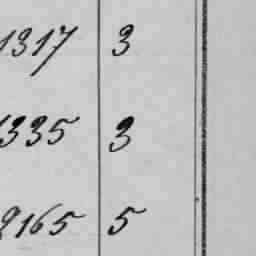 1317 3
1335 3
2165 5